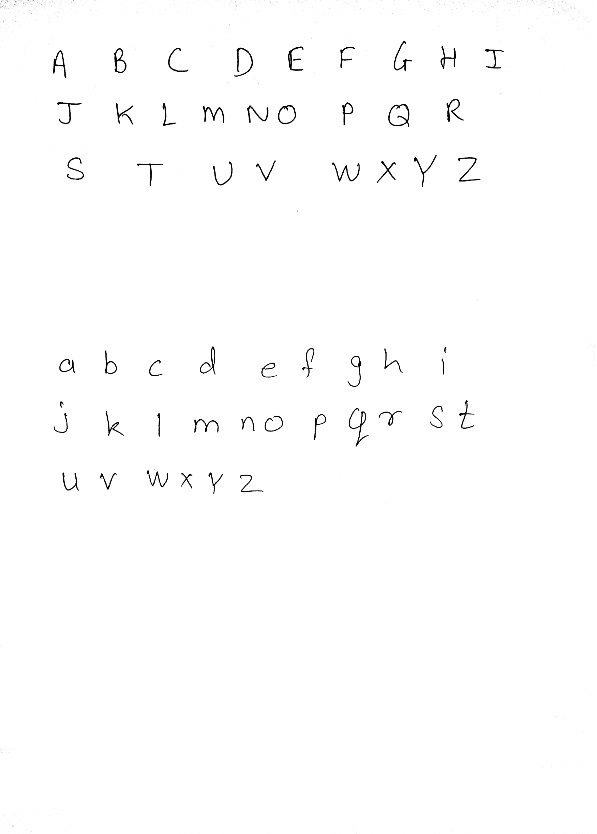 A B C D E F G H I
J K L M N O P Q R
S T U V W X Y Z
a b c d e f g h i
j k l m n o p q r s t
u v w x y z